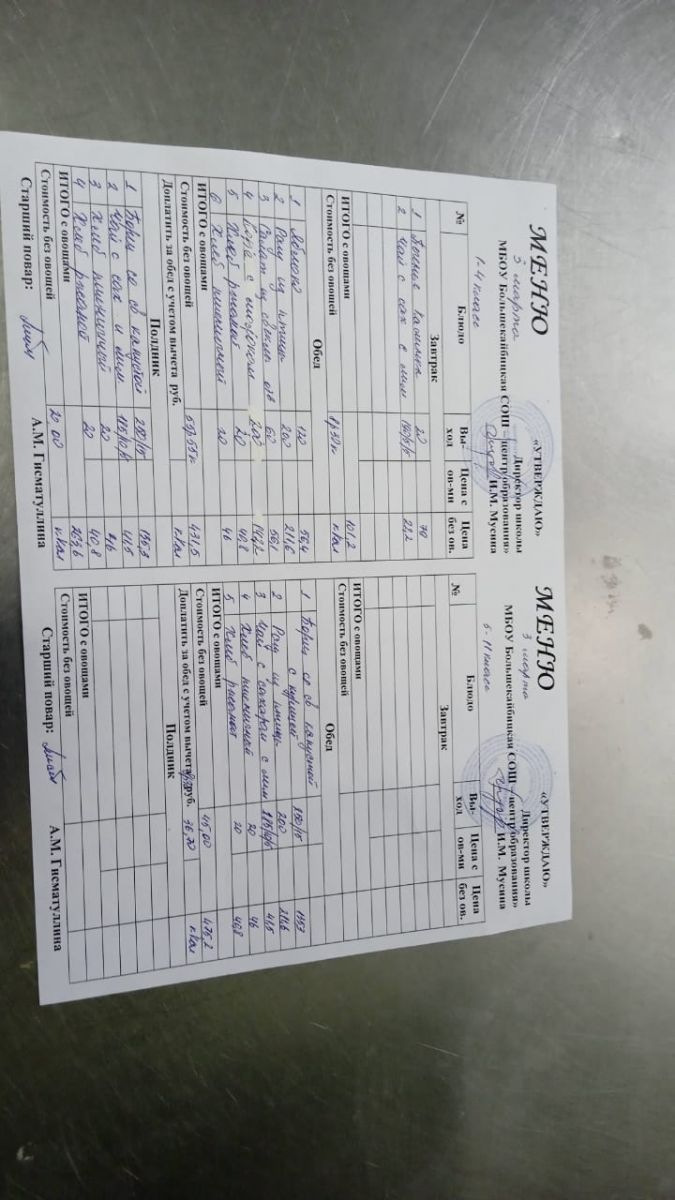 МЕНЮ
«УТВЕРЖДАЮ»
Директор школы
3 марта
МБОУ Большекайбицкая СОШ – центр образования»
И.М. Мусина
1-4 класс
№ Блюдо Вы-ход Цена с ов-ми Цена без ов.
Завтрак
1 20 79
2 Чай с сах с лим 22,2
ИТОГО с овощами 101,2
Стоимость без овощей ккал
Обед
1 Яблоко 120 56,4
2 Рагу из птицы 200 211,6
3 Салат из свеклы отв 60 56,1
4 200
5 Хлеб ржаной 20 40,8
6 Хлеб пшеничной 20 46
ИТОГО с овощами
Стоимость без овощей 431,5
Доплатить за обед с учетом вычета руб. ккал
Полдник
1 Борщ со св капустой 250/15 155,3
2 Чай с сах и лим 41,5
3 Хлеб пшеничной 20
4 Хлеб ржаной 20 40,8
ИТОГО с овощами
Стоимость без овощей 20 00 ккал
Старший повар: А.М. Гисматуллина
МЕНЮ
«УТВЕРЖДАЮ»
Директор школы
3 марта
МБОУ Большекайбицкая СОШ – центр образования»
И.М. Мусина
5-11 класс
№ Блюдо Вы-ход Цена с ов-ми Цена без ов.
Завтрак
ИТОГО с овощами
Стоимость без овощей
Обед
1 Борщ со св капустой
с курицей
2 Рагу из птицы 200 211,6
3 Чай с сахаром с лим 41,5
4 Хлеб пшеничной 20 46
5 Хлеб ржаной 20 40,8
ИТОГО с овощами
Стоимость без овощей 45,00 475,2
Доплатить за обед с учетом вычета руб. 36,70 ккал
Полдник
ИТОГО с овощами
Стоимость без овощей
Старший повар: А.М. Гисматуллина